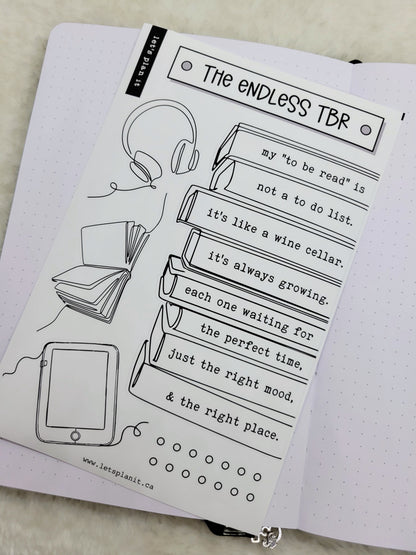 let's plan it
THE ENDLESS TBR
my "to be read" is
not a to do list.
it's like a wine cellar.
it's always growing.
each one waiting for
the perfect time,
just the right mood,
& the right place.
www.letsplanit.ca